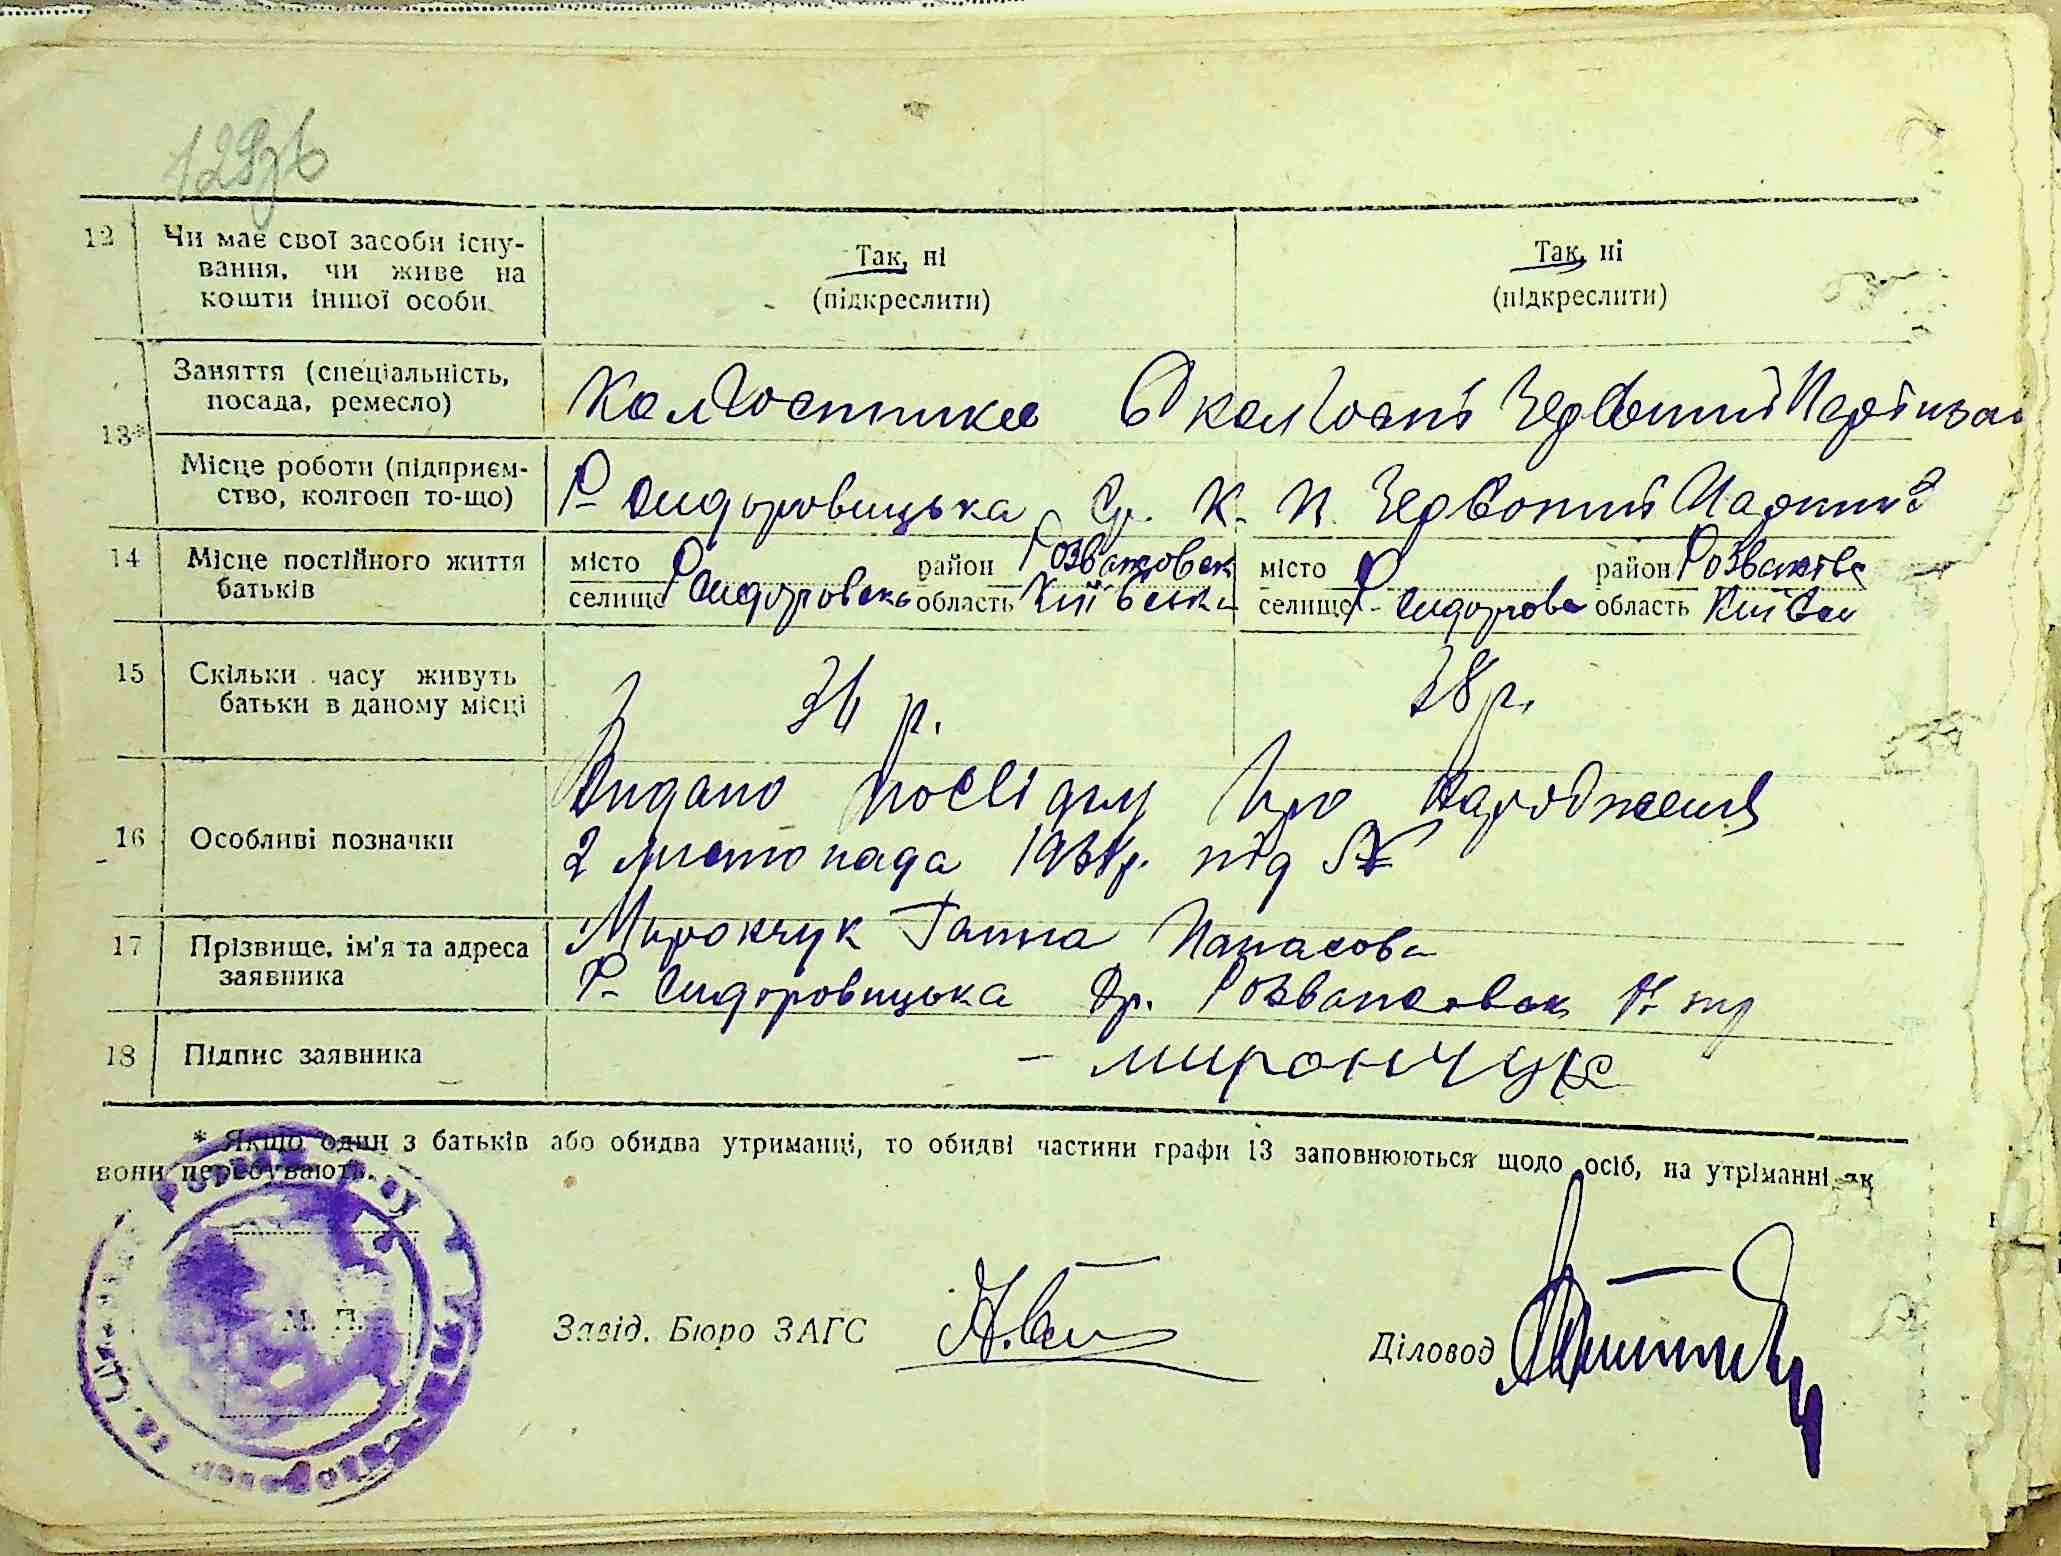 129зв
12 Чи має свої засоби існу-
вання, чи живе на
кошти іншої особи.
Так, ні
(підкреслити)
Так, ні
(підкреслити)
13*
Заняття (спеціальність,
посада, ремесло)
Колгоспнике В колгоспі Червоний Партизан
Місце роботи (підприєм-
ство, колгосп то-що)
Р- Сидоровицька Ср. К. П. Червоний
14 Місце постійного життя
батьків
місто район Розважовск
селище Р Сидоровск область Київська
місто район Розважів
селище Р- Сидорове область
15 Скільки часу живуть
батьки в даному місці
р.
38 р.
16 Особливі позначки
Видано посвідку про народження
2 листопада під №
17 Прізвище, ім'я та адреса
заявника
Мирончук Ганна Панасова
Р- Сидоровицька Розважовск
18 Підпис заявника
- мирончук
* Якщо один з батьків або обидва утриманці, то обидві частини графи 13 заповнюються щодо осіб, на утриманні як
вони перебувають.
М. П.
Завід. Бюро ЗАГС
Діловод